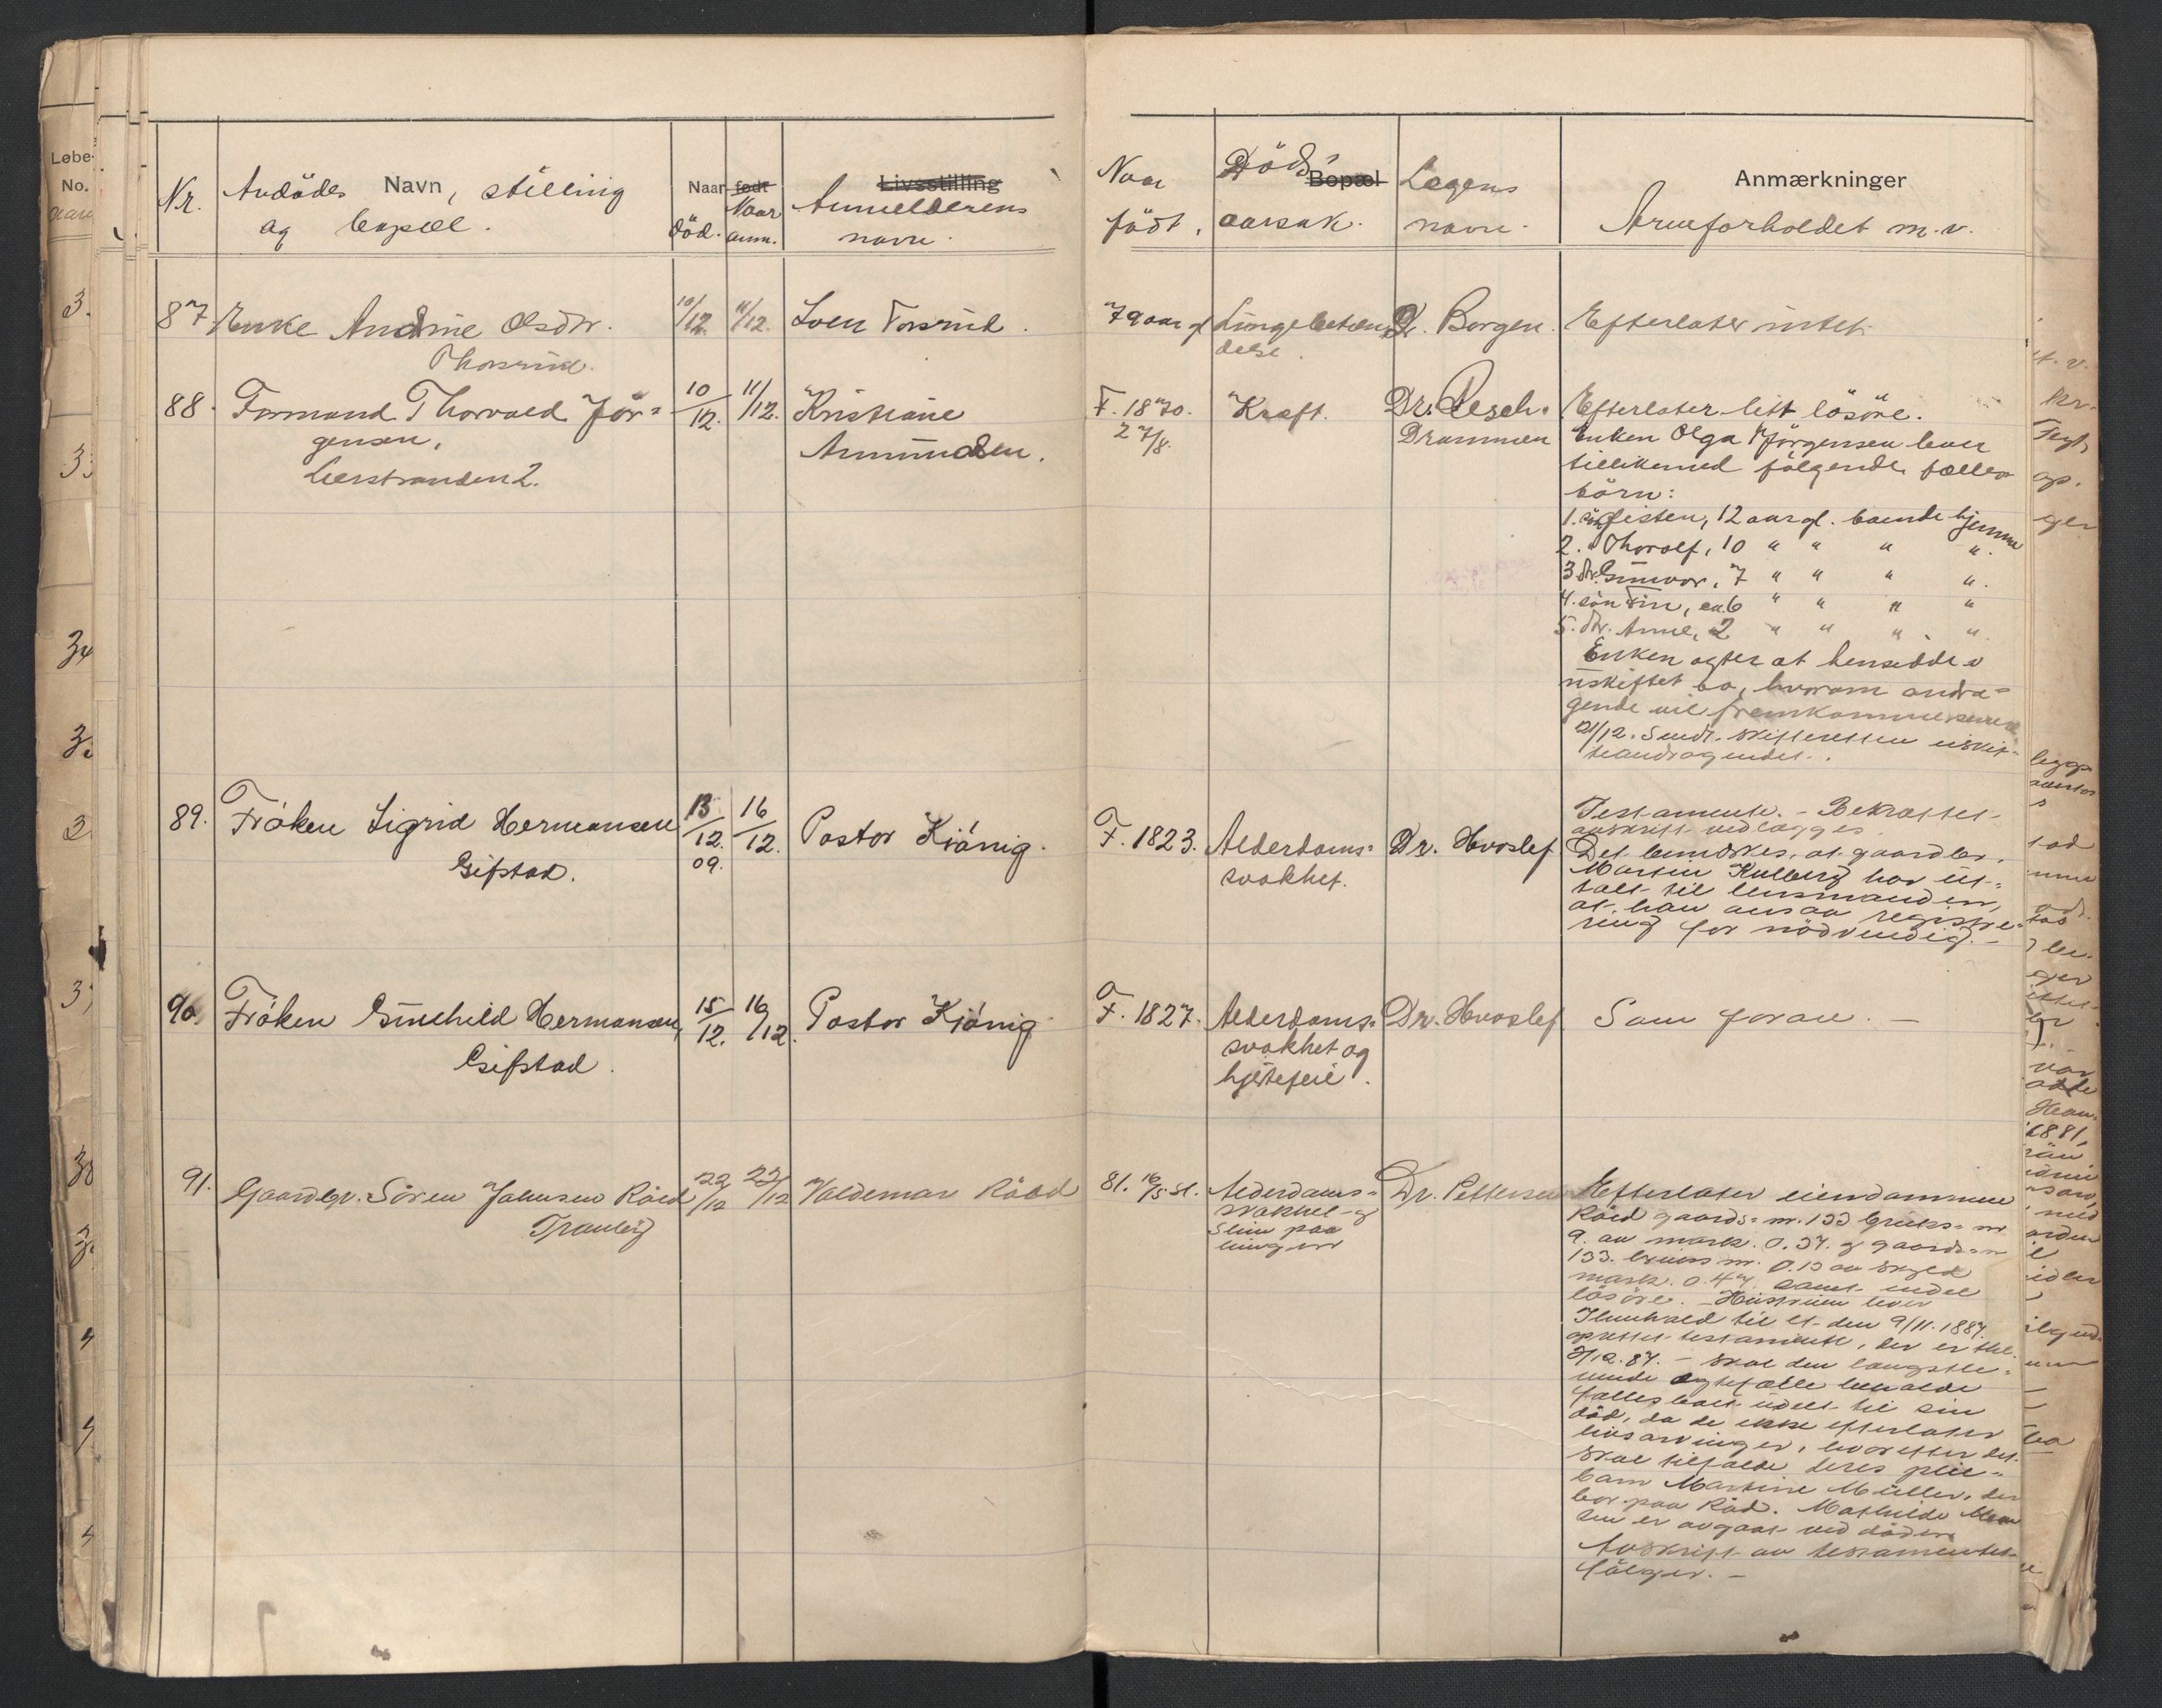 Nr.
Avdödes Navn, stilling
og bopæl.
Naar
död.
født
Naar
anm.
Livsstilling
Anmelderens
navn.
Naar
födt.
Döds
Bopæl
aarsak.
Lægens
navn.
Anmærkninger
Arveforholdet m.v.
87. Enke Andrine Olsdtr.
Thorsrud.
10/12. 11/12. Sven Torsrud.
79 aar gl. Lungebetæn
delse.
Dr. Borgen.
Efterlater intet.
88. Formand Thorvald Jör=
gensen,
Lierstranden 2.
10/12. 11/12. Kristiane
Amundsen.
F. 1870.
27/8.
Kræft.
Dr. Resch.
Drammen
Efterlater litt lösöre.
Enken Olga Jörgensen lever
tillikemed følgende fælles
börn:
1. sön Jisten, 12 aar gl. boende hjemme
2. " Thorolf, 10 " " " ".
3. dtr. Gunvor, 7 " " " ".
4. sön Finn, ca. 6 " " " "
5. dtr. Anne, 2 " " " ".
Enken agter at hensidde i
uskiftet bo, hvorom andra=
gende vil fremkomme senere
21/12. Sendt skifteretten uskif=
teandragendet.
89. Fröken Sigrid Hermansen
Gifstad.
13/12. 09. 16/12. Pastor Kjönig.
F. 1823. Alderdoms=
svakhet.
Dr. Hvoslef
Testamente. - Bekræftet
avskrift vedlægges.
Det bemerkes, at gaardbr.
Martin Kulberg har ut=
talt til lensmanden,
at han ansaa registre=
ring for nödvendig. -
90. Fröken Gunhild Hermansen,
Gifstad.
15/12. 16/12. Pastor Kjönig
F. 1827. Alderdoms=
svakhet og
hjertefeil.
Dr. Hvoslef
Som foran. -
91. Gaardbr. Sören Johnsen Röed
Tranby
22/12 23/12 Valdemar Rööd
81. 16/5 Alderdoms=
svakhet og
Slim paa
lungene
Dr. Pettersen
Efterlater eiendommene
Röed gaards= nr. 133 bruks= nr
9. av mark. 0.37. og gaards= nr
133. bruks nr. av skyld
mark. 0.47 samt endel
lösöre. - Hustruen lever
I henhold til et den 9/11. 1887.
oprettet testamente, der er thl.
/12.87. - skal den længstle=
vende ægtefælle beholde
fællesboet udelt til sin
död, da de ikke efterlater
livsarvinger, hvorefter det
skal tilfalde deres pleie=
barn Martine Müller, der
bor paa Röd. Mathilde
sen er avgaat ved döden
Avskrift av testamentet
fölger. -